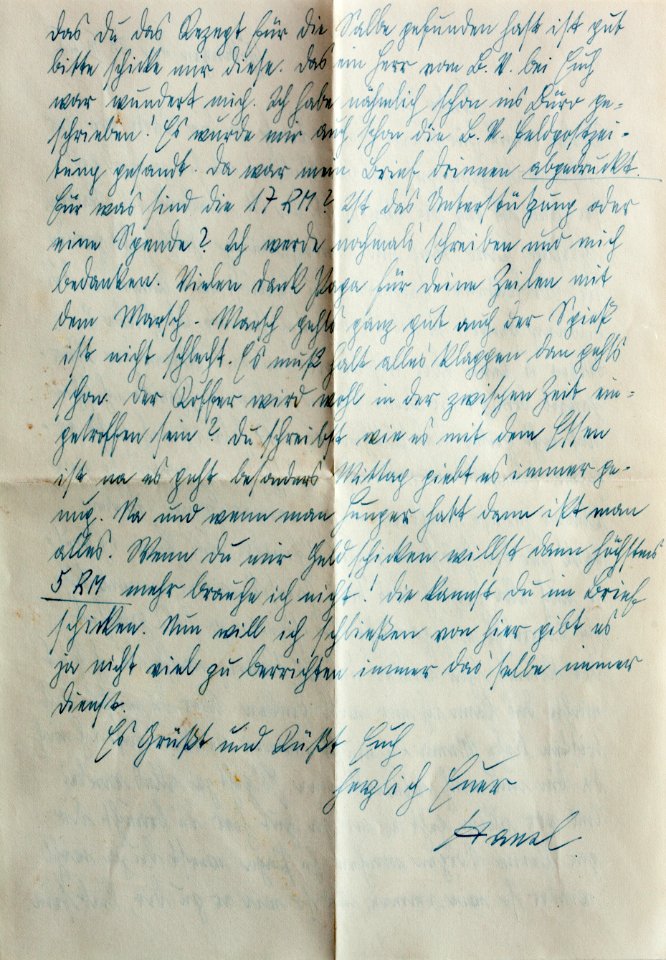 das du das Rezept für die Salbe gefunden hast ist gut
bitte schicke mir diese. Das ein Herr vom L. V. bei Euch
war wundert mich. Ich habe nähmlich schon ins Büro ge=
schrieben! Es wurde mir auch schon die L. V. Feldpostzei=
tung gesandt. Da war mein Brief drinnen abgedruckt.
Für was sind die 17 RM? Ist das Unterstützung oder
eine Spende? Ich werde nochmals schreiben und mich
bedanken. Vielen Dank Papa für deine Zeilen mit
dem Marsch-Marsch gehts ganz gut auch der Spieß
ist nicht schlecht. Es muß halt alles klappen dan gehts
schon. Der Koffer wird wohl in der zwischen Zeit ein=
getroffen sein? Du schreibst wie es mit dem Essen
ist na es geht besonders Mittag giebt es immer ge=
nug. Na und wenn man Hunger hatt dann ißt man
alles. Wenn du mir Geld schicken willst dann höchstens
5 RM mehr brauche ich nicht! Die kannst du im Brief
schicken. Nun will ich schließen von hier gibt es
ja nicht viel zu berrichten immer das selbe immer
Dienst.
Es Grüßt und Küßt Euch
herzlich Euer
Hansl